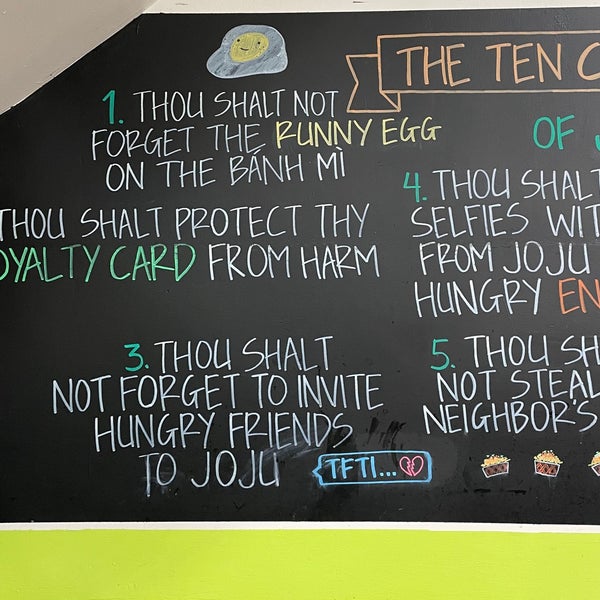 THE TEN C
OF J
1. THOU SHALT NOT
FORGET THE RUNNY EGG
ON THE BÁNH MÌ
THOU SHALT PROTECT THY
OYALTY CARD FROM HARM
3. THOU SHALT
NOT FORGET TO INVITE
HUNGRY FRIENDS
TO JOJU
TFTI...
4. THOU SHALT
SELFIES WIT
FROM JOJU
HUNGRY EN
5. THOU SH
NOT STEAL
NEIGHBOR'S